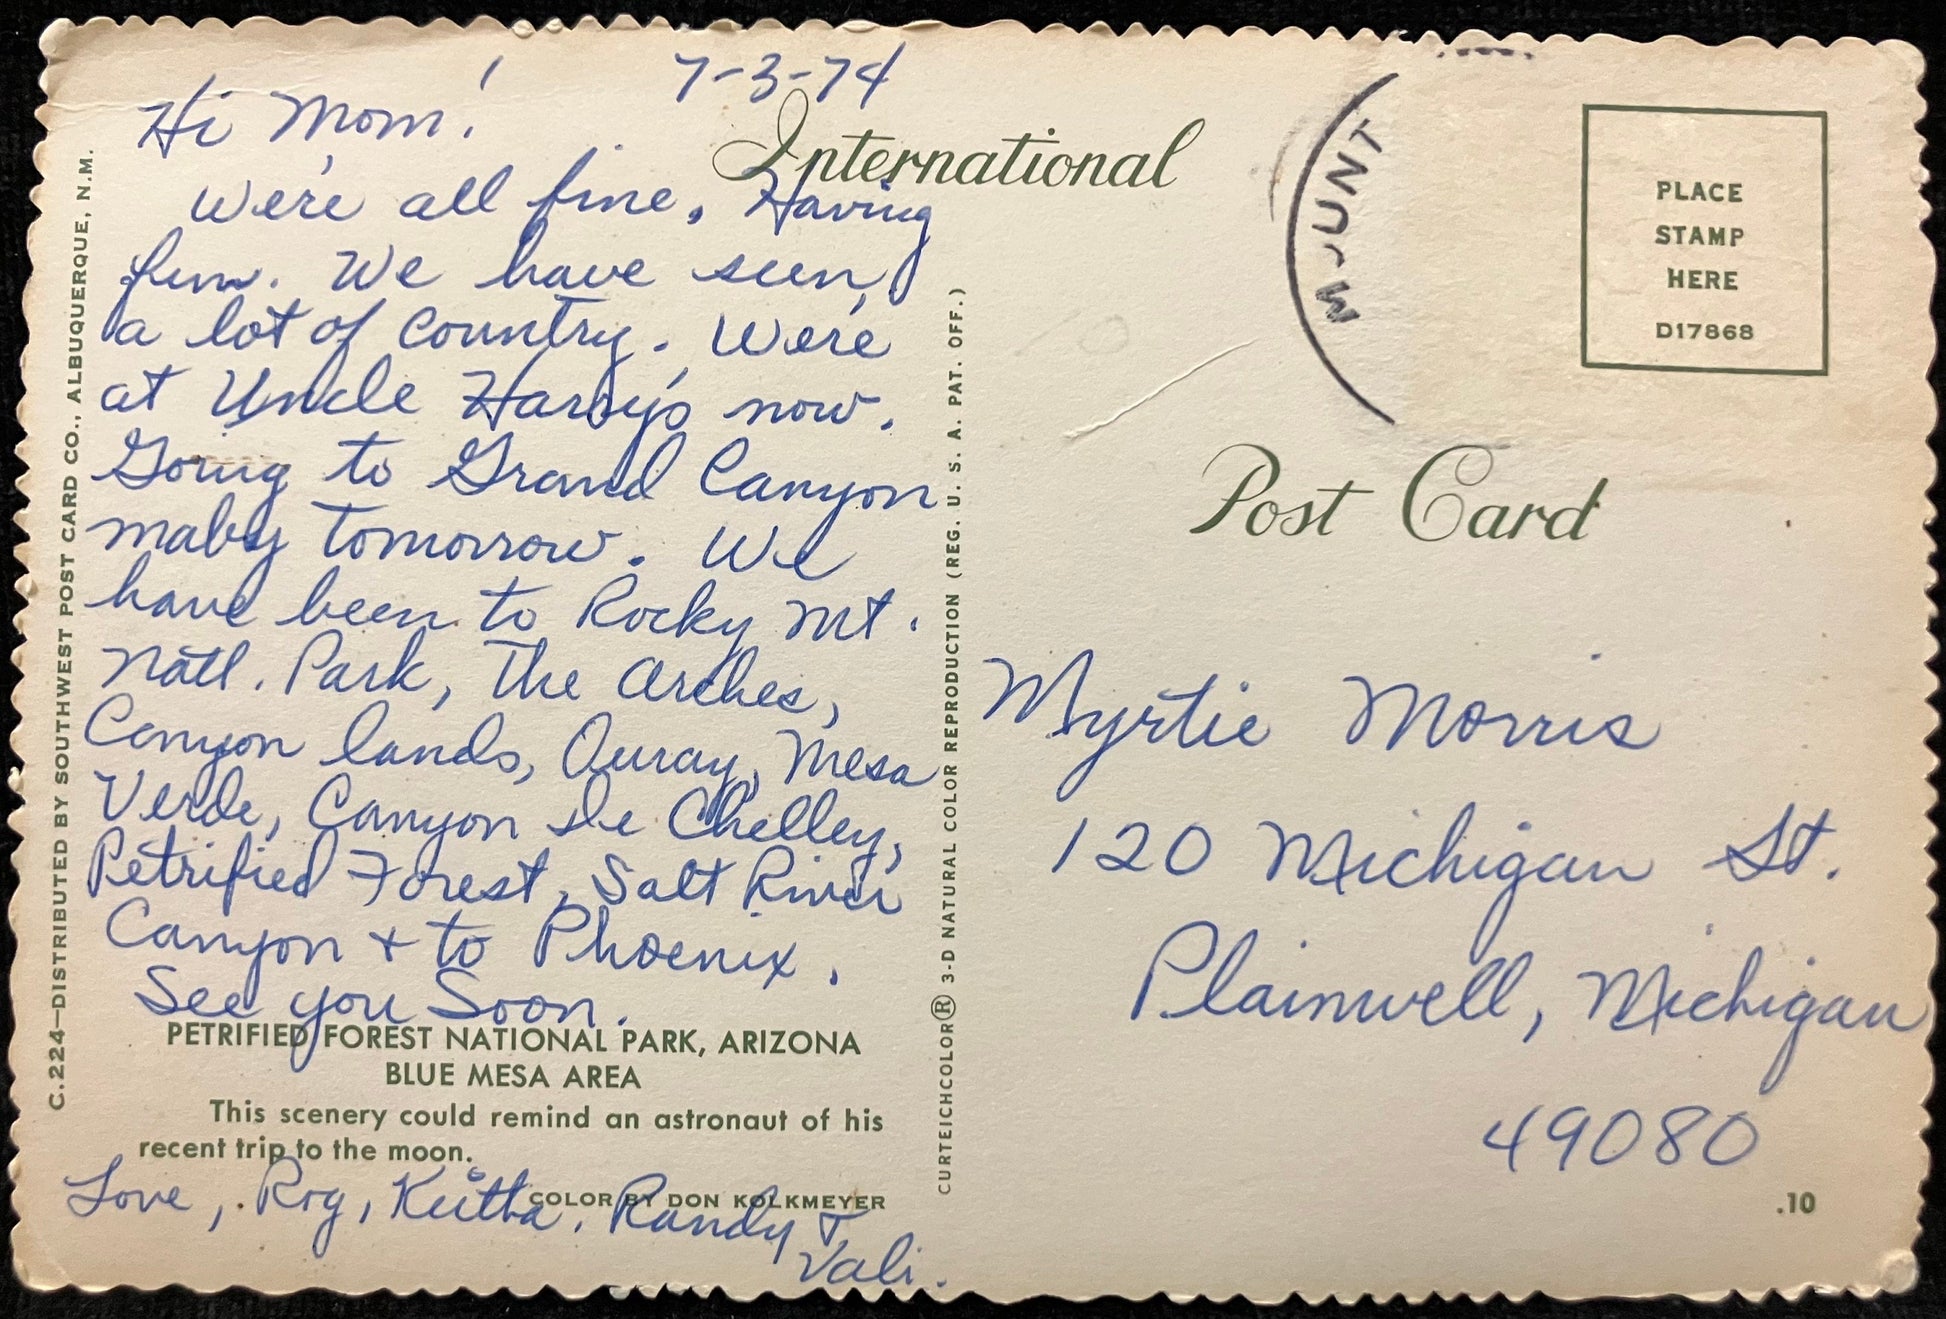 7-3-74
Hi Mom!
We're all fine. Having
fun. We have seen
a lot of country. We're
at Uncle Harry's now.
Going to Grand Canyon
maby tomorrow. We
have been to Rocky Mt.
Natl. Park, The Arches,
Canyon lands, Ouray, Mesa
Verde, Canyon de Chelley,
Petrified Forest, Salt River
Canyon + to Phoenix.
See you Soon.
PETRIFIED FOREST NATIONAL PARK, ARIZONA
BLUE MESA AREA
This scenery could remind an astronaut of his
recent trip to the moon.
COLOR BY DON KOLKMEYER
Love, Rog, Randy &
Vali.
C.224—DISTRIBUTED BY SOUTHWEST POST CARD CO., ALBUQUERQUE, N.M.
CURTEICHCOLOR® 3-D NATURAL COLOR REPRODUCTION (REG. U. S. A. PAT. OFF.)
International
Post Card
PLACE
STAMP
HERE
D17868
Myrtie Morris
120 Michigan St.
Plainwell, Michigan
49080
.10